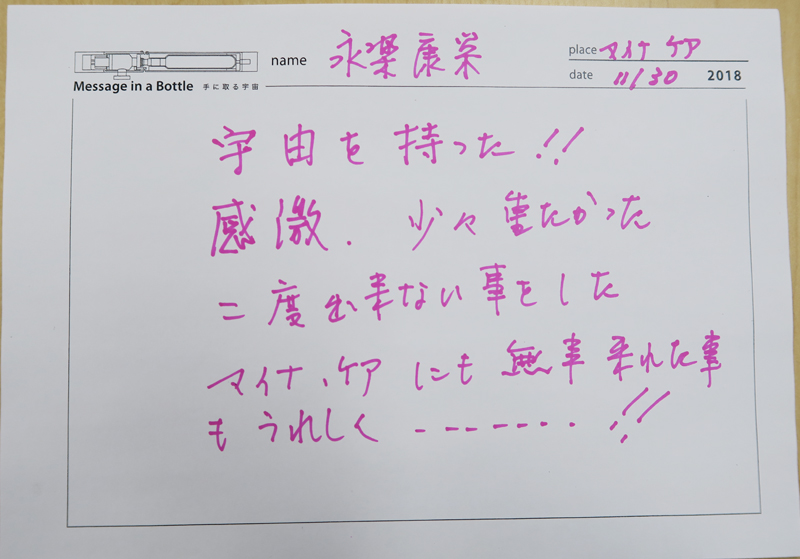 name 永楽康栄
place マイナ ケア
date 11/30 2018
Message in a Bottle 手に取る宇宙
宇由を持った!!
感激. 少々重たかった
二度出来ない事をした
マイナ、ケアにも無事来れた事
もうれしく - - - - - - - !!